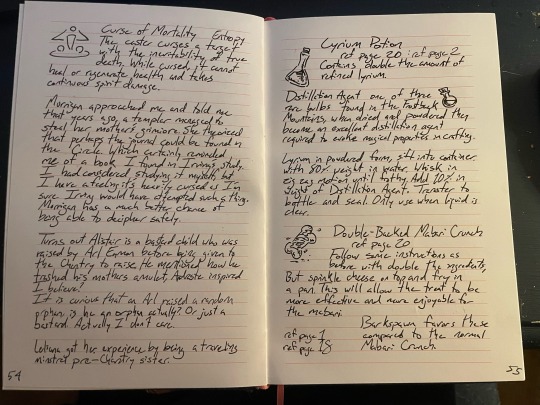 Curse of Mortality Entropy
The caster curses a target
with the inevitability of true
death. While cursed, it cannot
heal or regenerate health and takes
continuous spirit damage.
Morrigan approached me and told me
that years ago, a templar managed to
steal her mother's grimoire. She theorized
that perhaps the journal could be found in
the Circle. Which certainly reminded
me of a book I found in Irving's study.
I had considered studying it myself, but
I have a feeling it's heavily cursed as I'm
sure Irving would have attempted such a thing.
Morrigan has a much better chance of
being able to decipher safely.
Turns out Alistair is a bastard child who was
raised by Arl Eamon before being given to
the Chantry to raise. He mentioned how he
trashed his mother's amulet, Andraste inspired
I believe?
It is curious that an Arl raised a random
orphan, is he an orphan actually? Or just a
bastard. Actually I don't care.
Leliana got her experience by being a traveling
minstrel pre-Chantry sister.
54
Lyrium Potion
ref page 20 ; ref page 2
Contains double the amount of
refined lyrium.
Distillation Agent: one of three
rare bulbs found in the Frostback
Mountains, when dried and powdered they
become an excellent distillation agent
required to evoke magical properties in crafting.
Lyrium in powdered form, sift into container
with weight in water. Whisk in
motion until frothy. Add 10% in
weight of Distillation Agent. Transfer to
bottle and seal. Only use when liquid is
clear.
Double-Baked Mabari Crunch
ref page 20
Follow same instructions as
before with double the ingredients,
But sprinkle cheese on top and fry in
a pan. This will allow the treat to be
more effective and more enjoyable for
the mabari.
Barkspawn favors these
compared to the normal
Mabari Crunch.
ref page 1
ref page 18
55